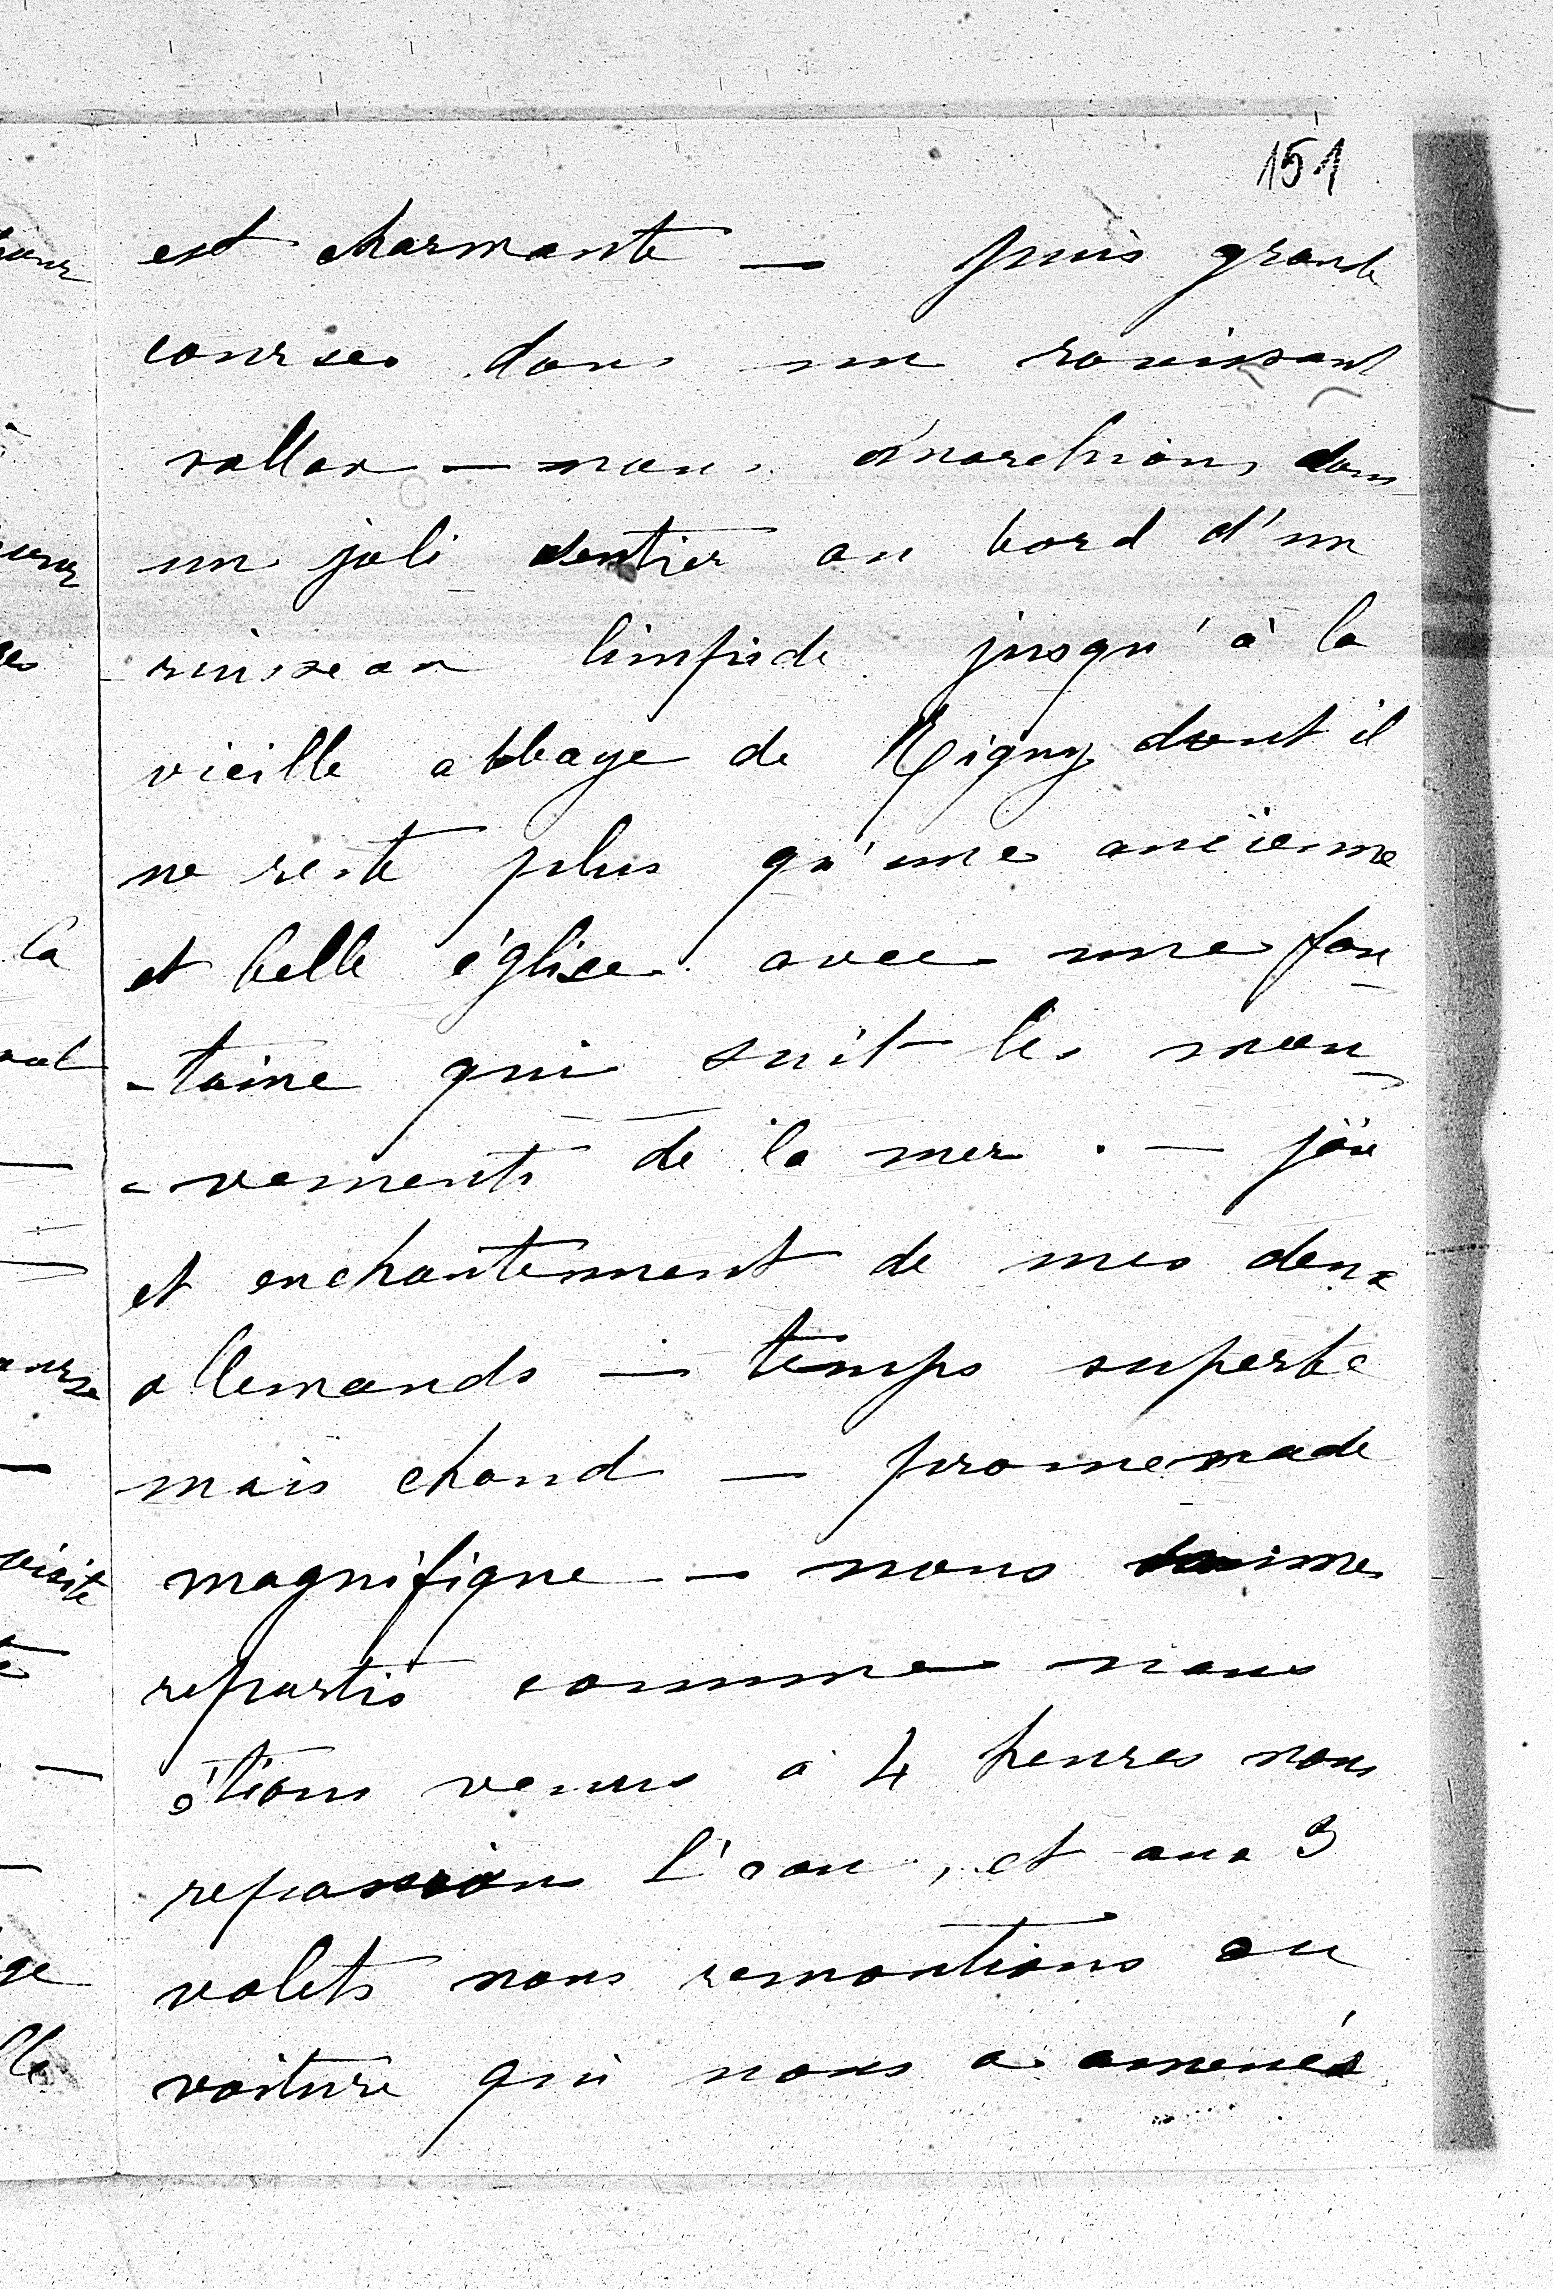 151
est charmante — puis grande
courses dans un ravissant
vallon — nous marchions dans
un joli sentier au bord d'un
ruisseau limpide jusqu'à la
vieille abbaye de Rigny dont il
ne reste plus qu'une ancienne
et belle église avec une fon
-taine qui suit les mou
-vements de la mer. — joie
et enchantement de mes deux
allemands — temps superbe
mais chaud — promenade
magnifique — nous
repartis comme nous
étions venus à 4 heures nous
repassions l'eau, et aux 3
volets nous remontions en
voiture qui nous a amenés
la
visite